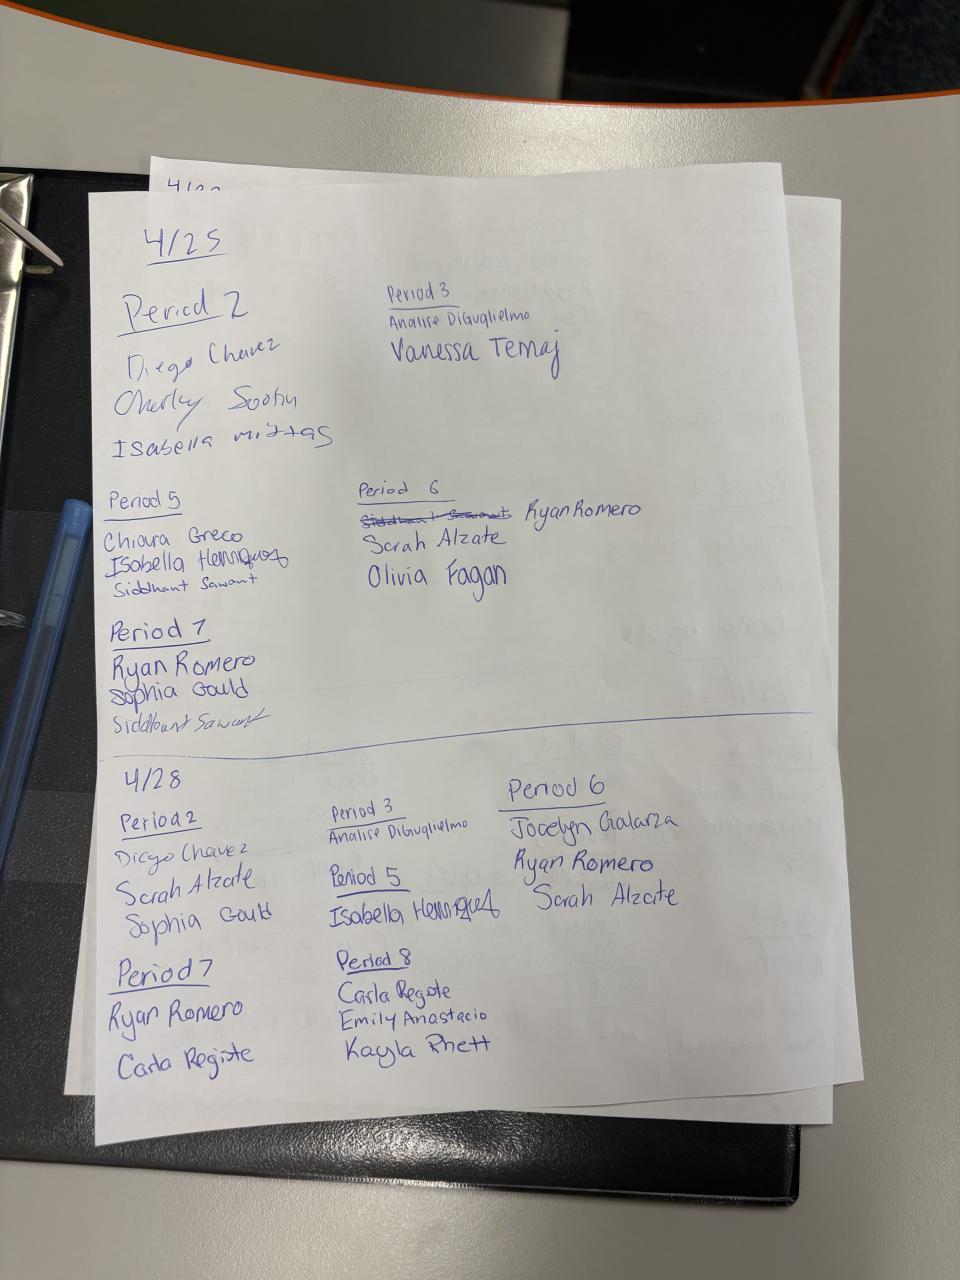 4/25
Period 2
Diego Chavez
Isabella
Period 3
Analise DiGuglielmo
Vanessa Temaj
Period 5
Chiara Greco
Isabella Henriquez
Siddhant Sawant
Period 6
Siddhant Sawant Ryan Romero
Sarah Alzate
Olivia Fagan
Period 7
Ryan Romero
Sophia Gould
Siddhant Sawant
4/28
Period 2
Diego Chavez
Sarah Alzate
Sophia Gould
Period 3
Analise DiGuglielmo
Period 5
Isabella Henriquez
Period 6
Jocelyn Galarza
Ryan Romero
Sarah Alzate
Period 7
Ryan Romero
Carla Registe
Period 8
Carla Registe
Emily Anastacio
Kayla Rhett